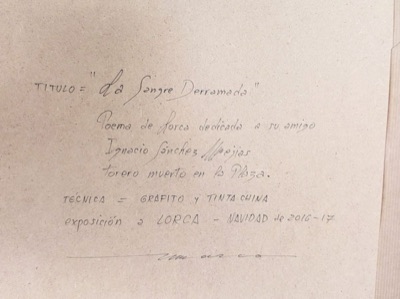 TITULO = "La Sangre Derramada"
Poema de Lorca dedicada a su amigo
Ignacio Sánchez Mejias
torero muerto en la Plaza.
TECNICA = GRAFITO Y TINTA CHINA
exposición a LORCA - NAVIDAD de 2016-17